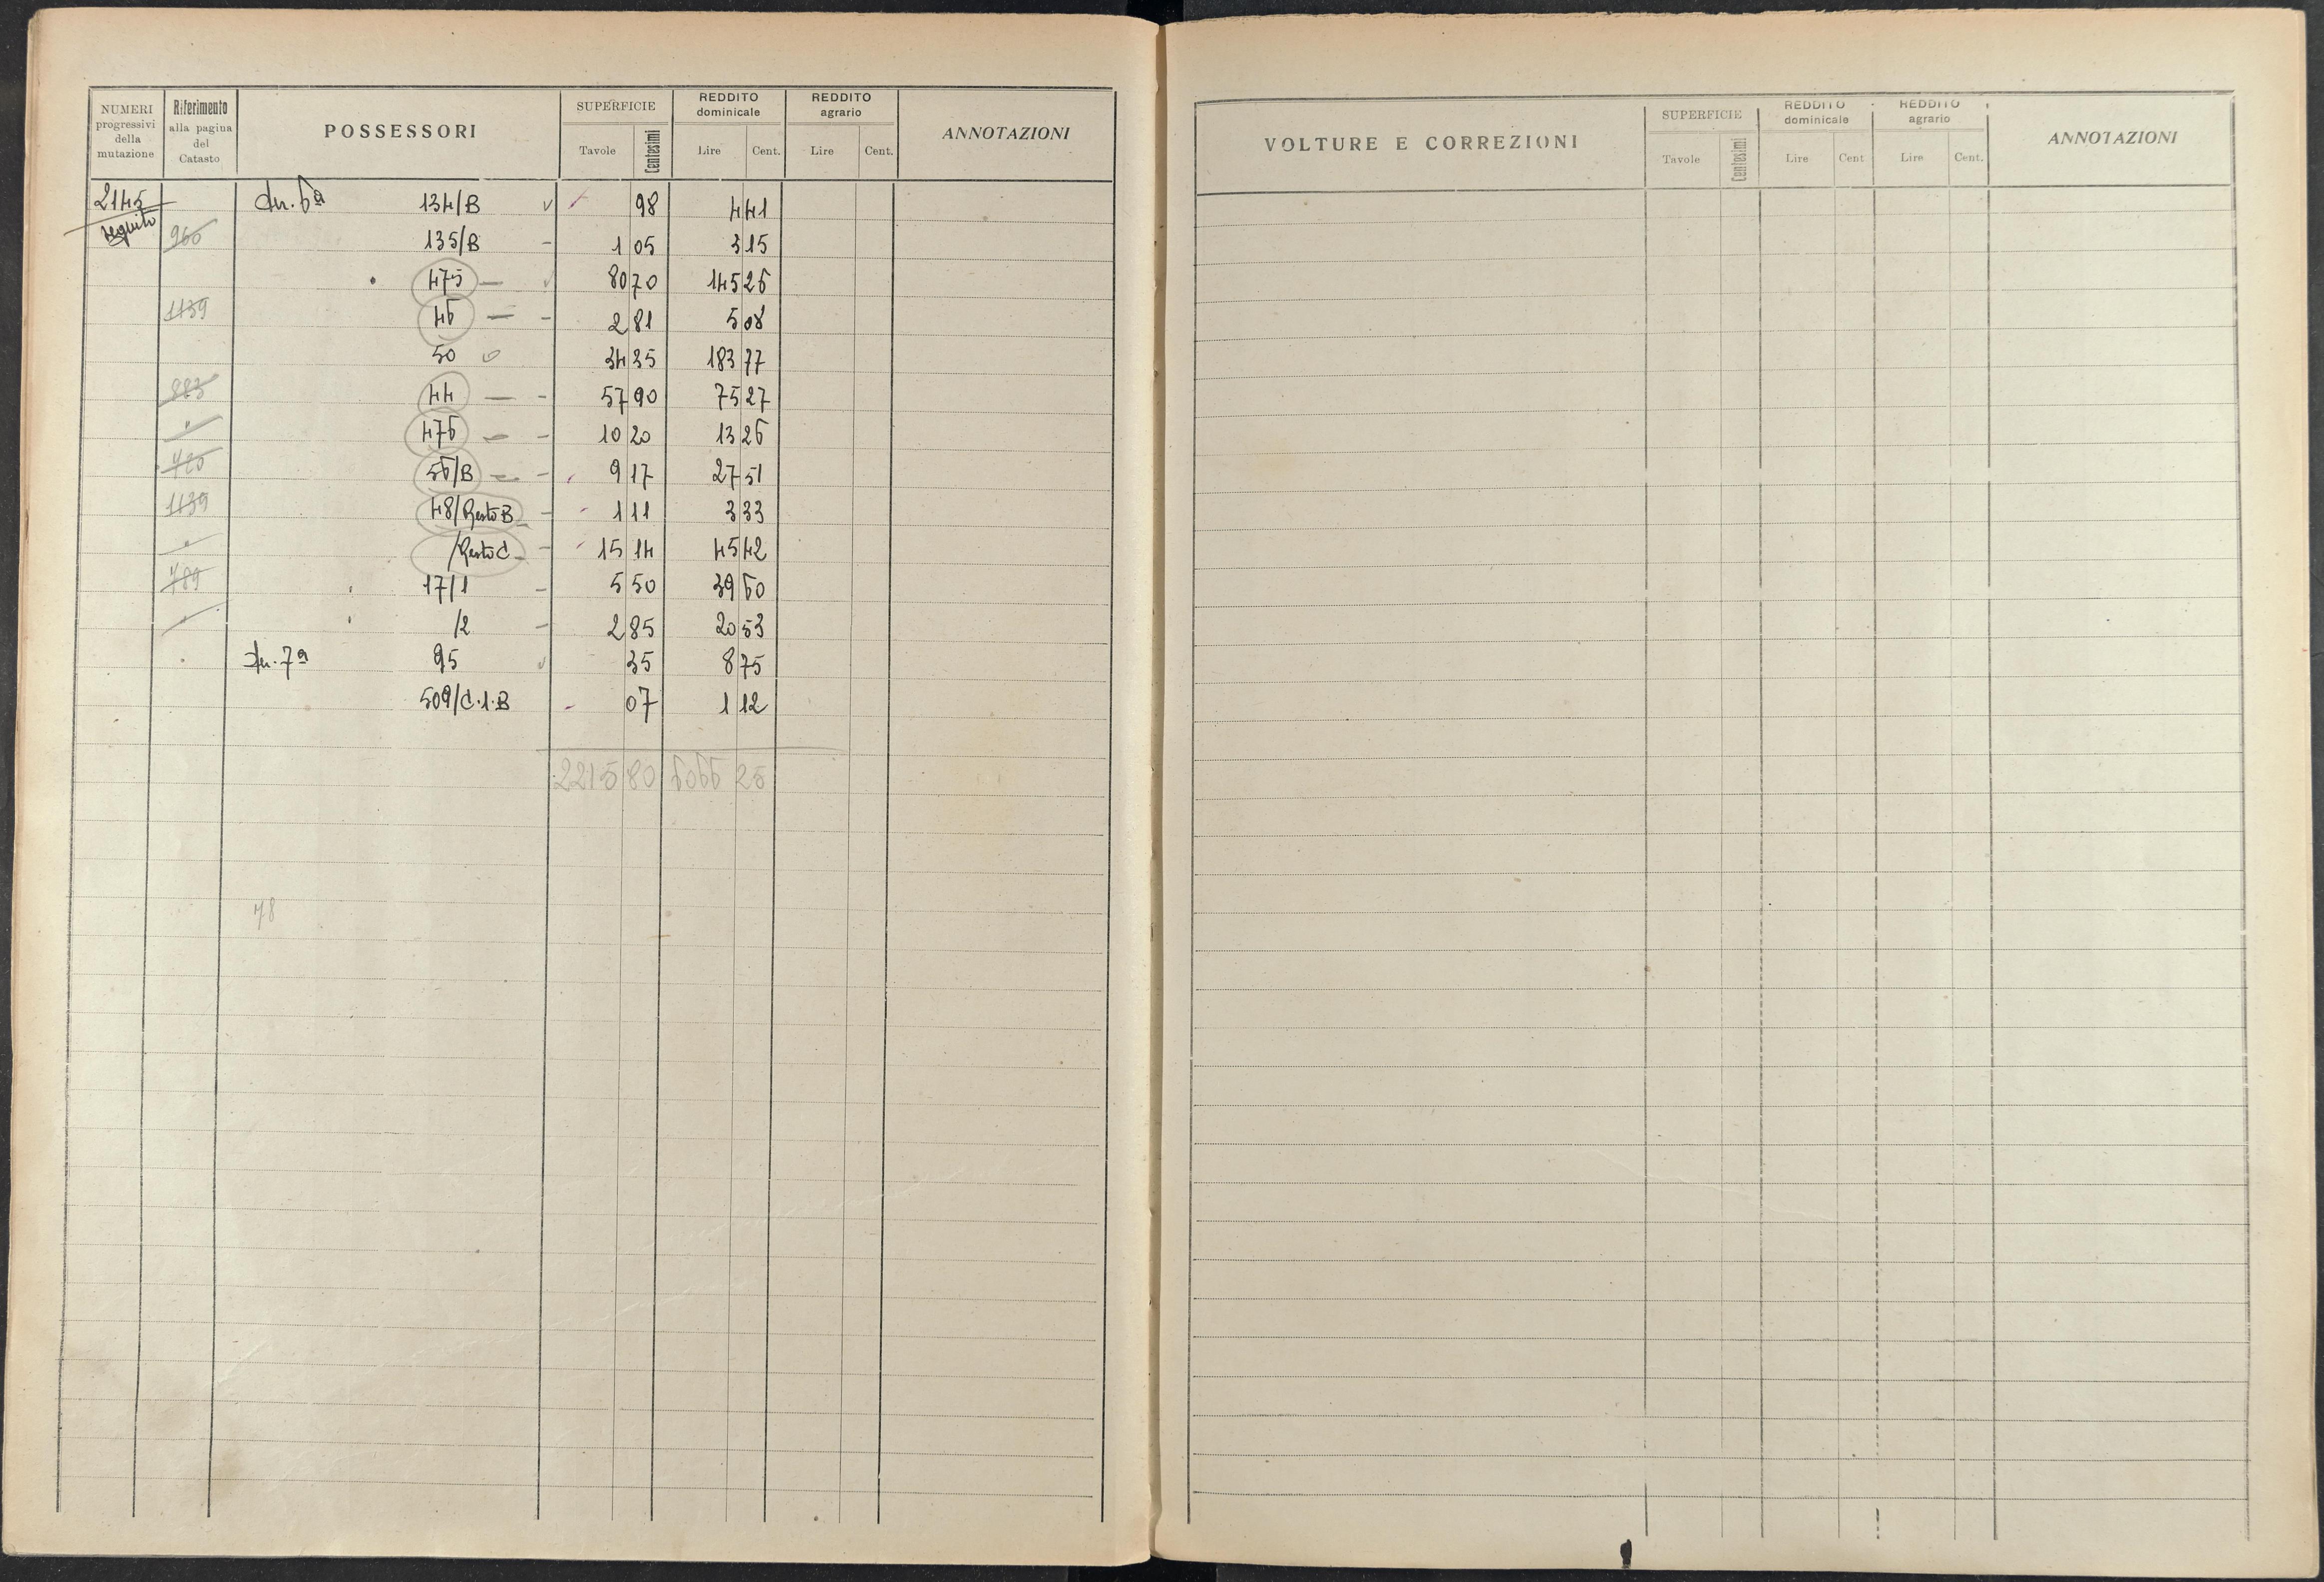 NUMERI progressivi della mutazione | Riferimento alla pagina del Catasto | POSSESSORI | SUPERFICIE Tavole Centesimi | REDDITO dominicale Lire Cent. | REDDITO agrario Lire Cent. | ANNOTAZIONI
2145 134/B 98 4 41
seguito 960 135/B 1 05 3 15
475 80 70 145 26
1139 46 2 81 5 08
50 34 35 183 77
883 44 57 90 75 27
" 476 10 20 13 26
720 56/B 9 17 27 51
1139 48/Resto B 1 11 3 33
" /Resto C 15 14 45 42
789 17/1 5 50 39 60
" /2 2 85 20 53
95 35 8 75
509/C.1.B 07 1 12
2215 80 6066 25
78
VOLTURE E CORREZIONI | SUPERFICIE Tavole Centesimi | REDDITO dominicale Lire Cent | REDDITO agrario Lire Cent. | ANNOTAZIONI